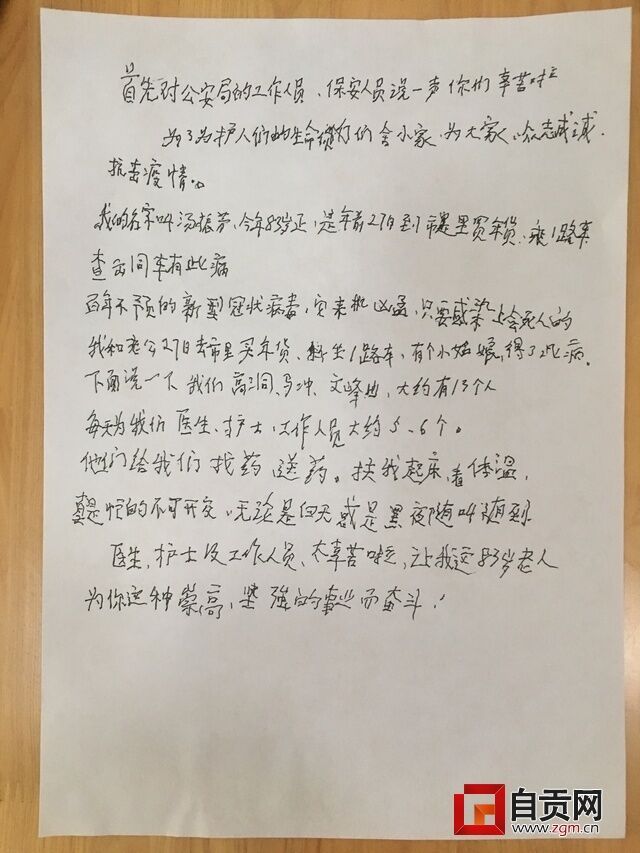 首先对公安局的工作人员、保安人员说一声你们辛苦啦
为了为护人们的生命你们舍小家、为大家、众志成城、
抗击疫情。
我的名字叫汤振芳、今年83岁正、是年前27日到市里买年货、乘1路车
查出同车有此病
百年不预的新型冠状病毒，实来机凶猛，只要感染上会死人的
我和老公27日去市里买年货、料坐1路车，有个小姑娘，得了此病。
下面说一下我们高洞、马冲、文峰山，大约有13个人
每天为我们医生、护士、工作人员大约5、6个。
他们给我们找药送药。扶我起床、看体温，
真是忙的不可开交，无论是白天或是黑夜随叫随到
医生，护士及工作人员、太辛苦啦，让我这83岁老人
为你这种崇高，坚强的事业而奋斗！
自贡网
www.zgm.cn